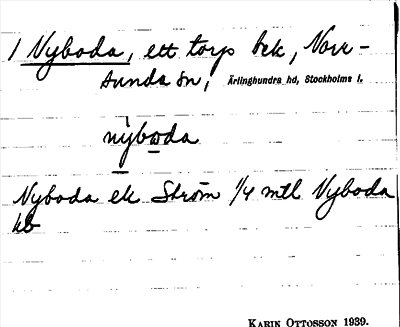 1 Nyboda, ett torp bek, Norr-
sunda sn, Ärlinghundra hd, Stockholms l.
nyboda
Nyboda el. Ström 1/4 mtl Nyboda
KARIN OTTOSSON 1939.